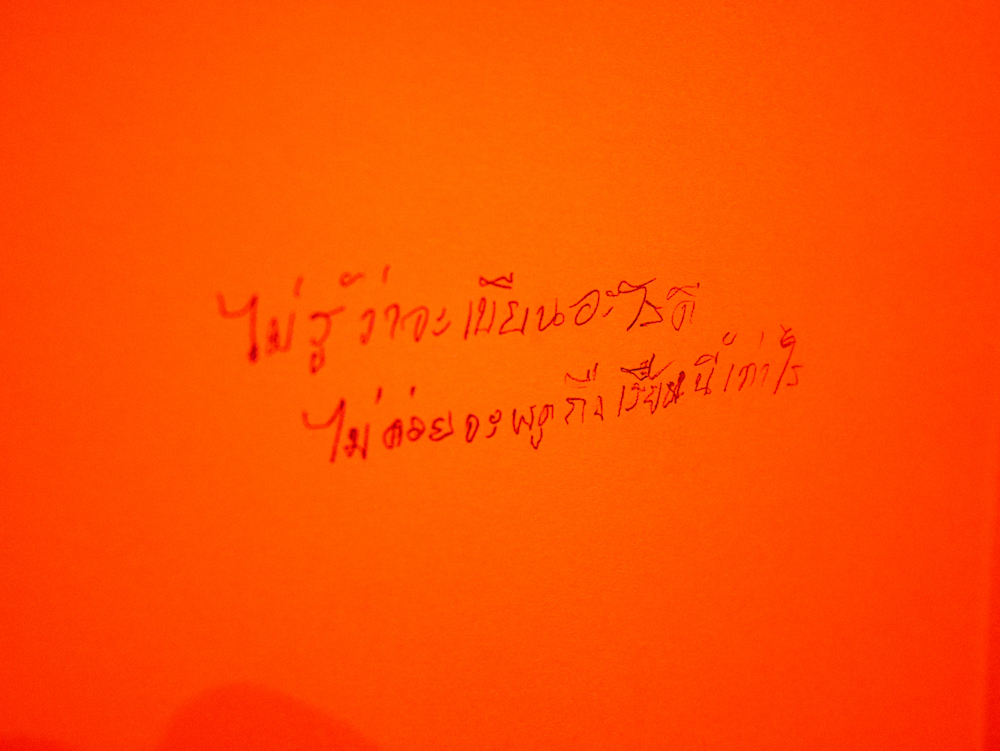 ไม่รู้ว่าจะเขียนอะไรดี
ไม่ค่อยจะพูดถึงเรื่องนี้เท่าไร